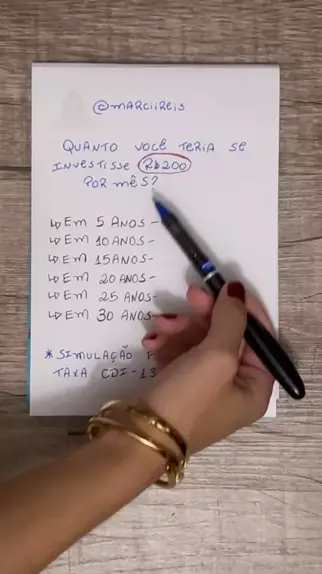 @marciireis
QUANTO VOCÊ TERIA SE
INVESTISSE R$200
POR MÊS?
↳ Em 5 ANOS -
↳ Em 10 ANOS -
↳ Em 15 ANOS -
↳ Em 20 ANOS -
↳ Em 25 ANOS -
↳ Em 30 ANOS -
* SIMULAÇÃO
TAXA CDI - 13